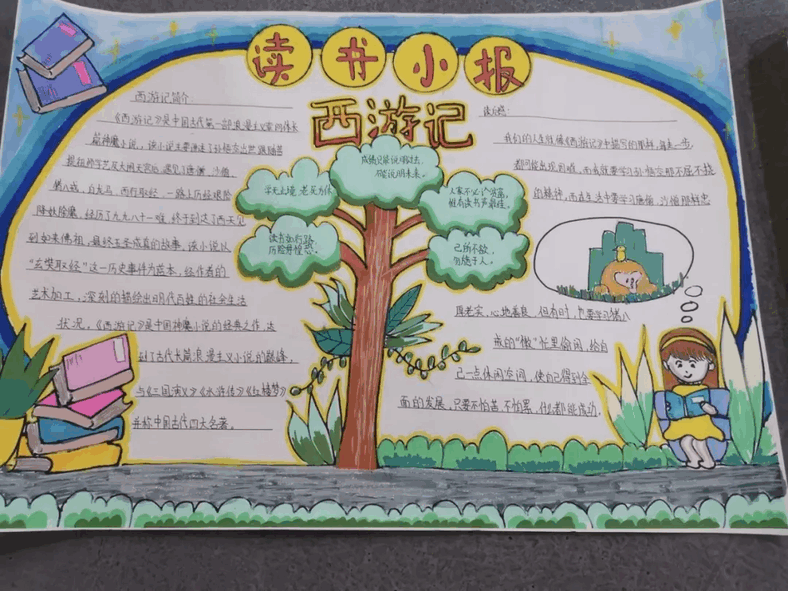 读书小报
西游记
西游记简介:
《西游记》是中国古代第一部浪漫主义章回体长
篇神魔小说,该小说主要讲述了孙悟空出世跟随菩
提祖师学艺及大闹天宫后,遇见了唐僧、沙僧、
猪八戒,白龙马,西行取经,一路上历经艰险
降妖除魔,经历了九九八十一难,终于到达了西天见
到如来佛祖,最终五圣成真的故事。该小说以
“玄奘取经”这一历史事件为蓝本,经作者的
艺术加工,深刻的描绘出明代百姓的社会生活
状况,《西游记》是中国神魔小说的经典之作,达
到了古代长篇浪漫主义小说的巅峰,
与《三国演义》《水浒传》《红楼梦》
并称中国古代四大名著。
学无止境 老死方休
读书如行路
历险勿惶恐。
成绩只能说明过去,
不能说明未来。
人家不必论富,
惟有读书声最佳。
己所不欲,
勿施于人。
读后感:
我们的人生就像《西游记》中描写的那样,
都可能出现困难,而我就要学习孙悟空那不屈不挠
的精神,而在生活中要学习唐僧,沙僧那样忠
厚老实,心地善良,但有时,也要学习猪八
戒的“懒”忙里偷闲,给自
己一点休闲空间,使自己得到全
面的发展,只要不怕苦,不怕累,什么都能成功。